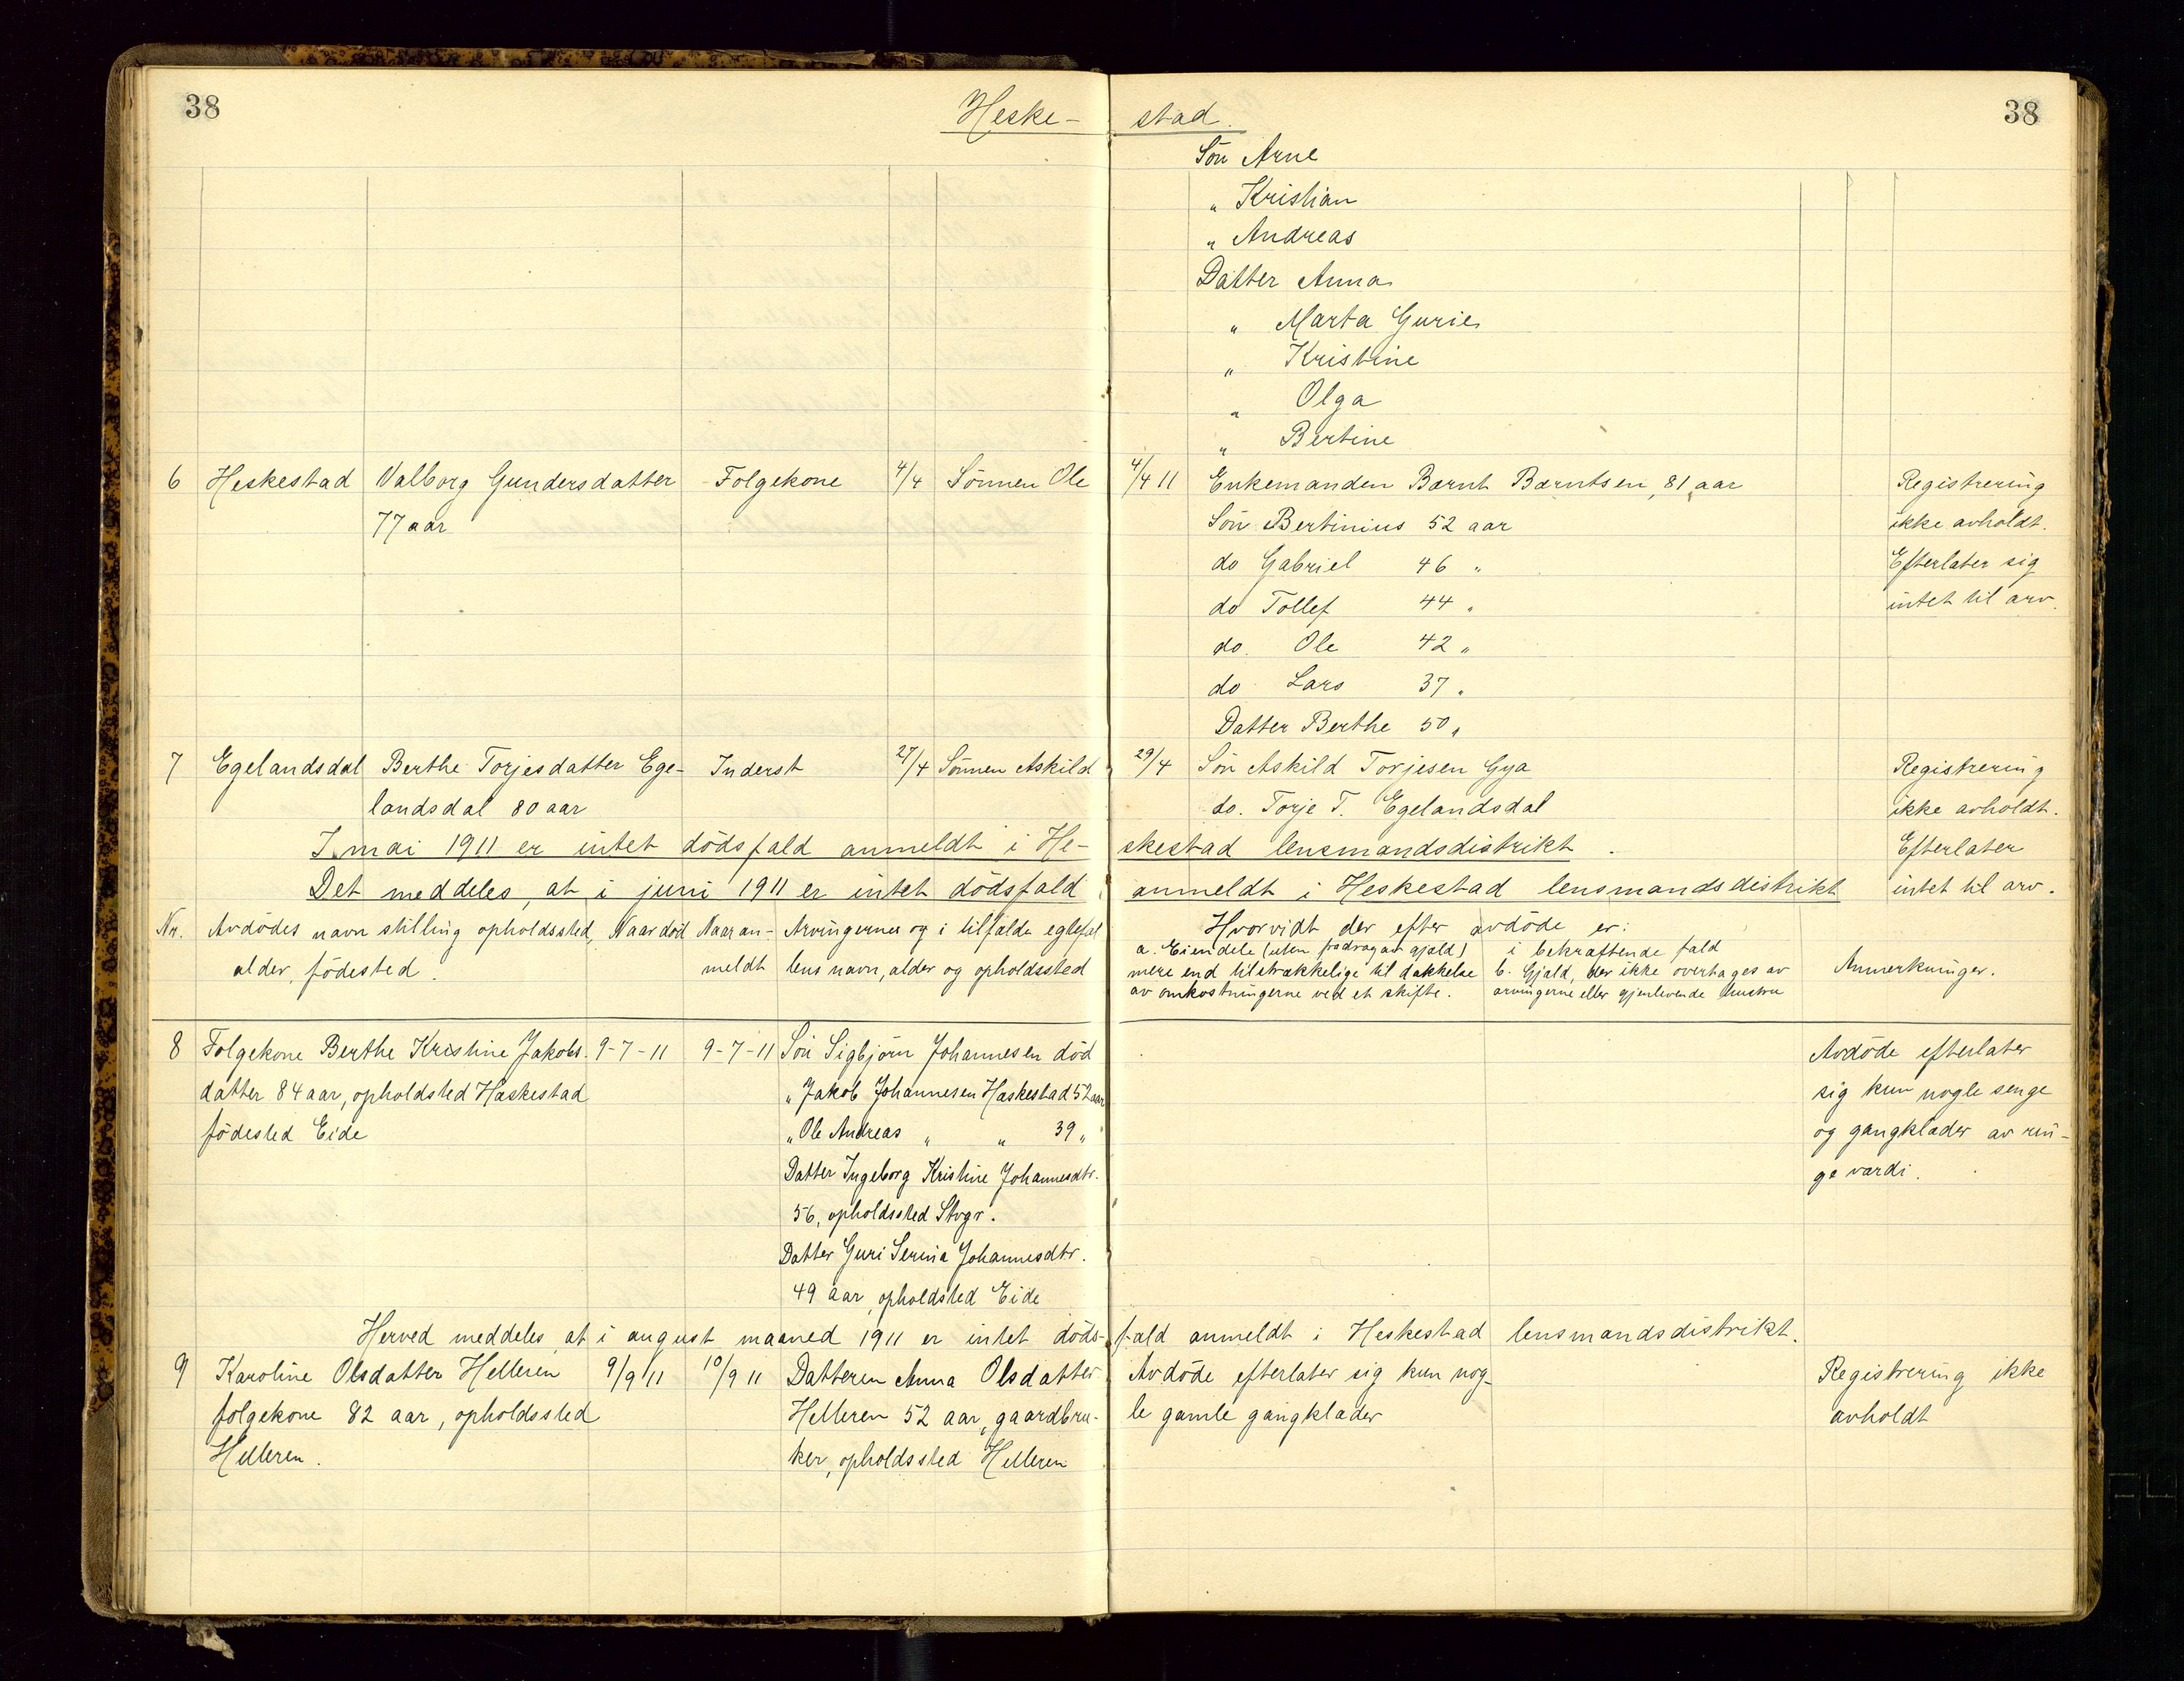 38
Heske- stad.
38
Sön Arne
" Kristian
" Andreas
Datter Anna
" Marta Gurie
" Kristine
" Olga
" Bertine
6 Heskestad Valborg Gundersdatter Folgekone 4/4 Sönnen Ole 4/4 11 Enkemanden Bærnt Bærntsen, 81 aar Registrering
77 aar Sön Bertinius 52 aar ikke avholdt.
do Gabriel 46 " Efterlater sig
do Tollef 44 " intet til arv.
do. Ole 42 "
do Lars 37 "
Datter Berthe 50 "
7 Egelandsdal Berthe Torjesdatter Ege- Inderst 27/4 Sönnen Askild 29/4 Sön Askild Torjesen Gya Registrering
landsdal 80 aar do. Torje T. Egelandsdal ikke avholdt.
I mai 1911 er intet dödsfald anmeldt i He- skestad lensmandsdistrikt. Efterlater
Det meddeles, at i juni 1911 er intet dödsfald anmeldt i Heskestad lensmandsdistrikt intet til arv.
Nr. Avdödes navn stilling opholdssted, Naar död Naar an- Arvingernes og i tilfælde egtefæl Hvorvidt der efter avdöde er:
alder, födested. meldt lens navn, alder og opholdssted
a. Eiendele (uten fradrag av gjæld) i bekræftende fald
mere end tilstrækkelige til dækkelse b. Gjæld, der ikke overtages av Anmerkninger.
av omkostningerne ved et skifte. arvingerne eller gjenlevende hustru
8 Folgekone Berthe Kristine Jakobs- 9-7-11 9-7-11 Sön Sigbjörn Johannesen död Avdöde efterlater
datter 84 aar, opholdsted Hæskestad " Jakob Johannesen Hæskestad 52 aar sig kun nogle senge
födested Eide " Ole Andreas " " 39 " og gangklæder av rin-
Datter Ingeborg Kristine Johannesdtr. ge værdi.
56, opholdssted Stvgr.
Datter Guri Serina Johannesdtr.
49 aar, opholdsted Eide
Herved meddeles, at i august maaned 1911 er intet döds- fald anmeldt i Heskestad lensmandsdistrikt.
9 Karoline Olsdatter Helleren 9/9 11 10/9 11 Datteren Anna Olsdatter Avdöde efterlater sig kun nog- Registrering ikke
folgekone 82 aar, opholdssted Helleren 52 aar, gaardbru- le gamle gangklæder avholdt
Helleren. ker, opholdssted Helleren